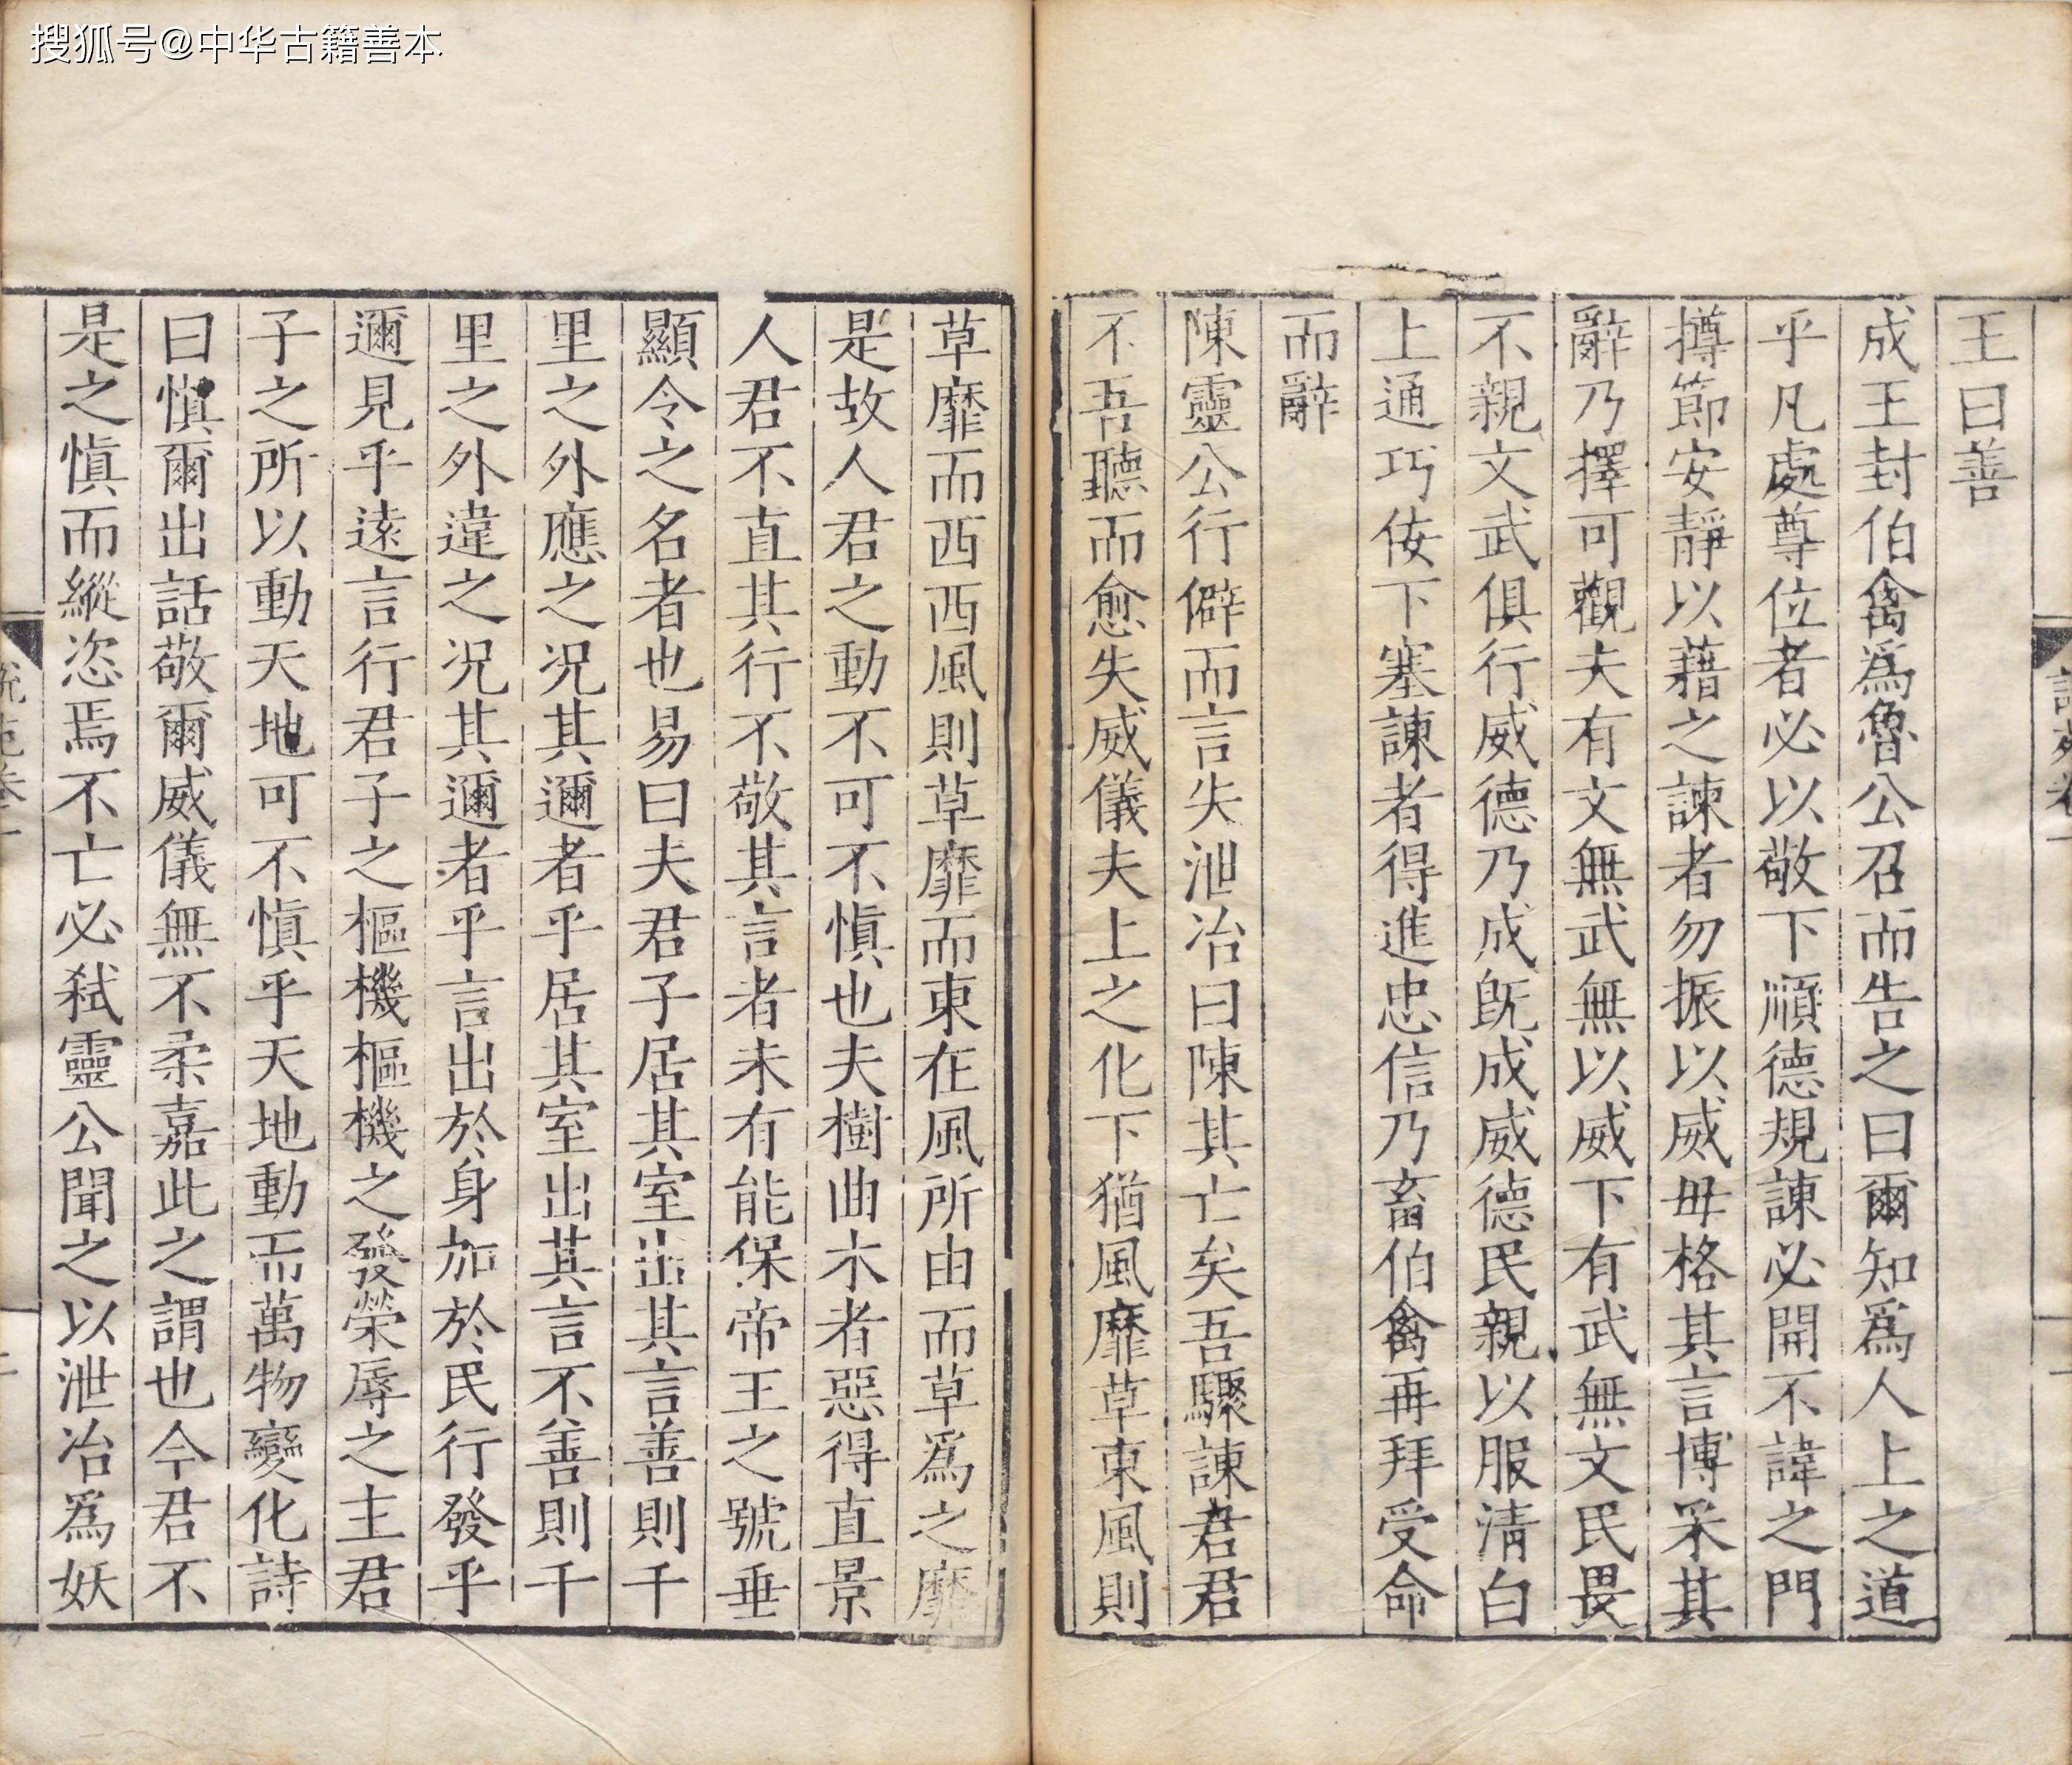 搜狐号@中华古籍善本
王曰善
成王封伯禽爲魯公召而告之曰爾知爲人上之道
乎凡處尊位者必以敬下順德規諫必開不諱之門
撙節安靜以藉之諫者勿振以威毋格其言博采其
辭乃擇可觀夫有文無武無以威下有武無文民畏
不親文武俱行威德乃成旣成威德民親以服清白
上通巧佞下塞諫者得進忠信乃畜伯禽再拜受命
而辭
陳靈公行僻而言失泄冶曰陳其亡矣吾驟諫君君
不吾聽而愈失威儀夫上之化下猶風靡草東風則
草靡而西西風則草靡而東在風所由而草爲之靡
是故人君之動不可不愼也夫樹曲木者惡得直景
人君不直其行不敬其言者未有能保帝王之號垂
顯令之名者也易曰夫君子居其室出其言善則千
里之外應之况其邇者乎居其室出其言不善則千
里之外違之况其邇者乎言出於身加於民行發乎
邇見乎遠言行君子之樞機樞機之發榮辱之主君
子之所以動天地可不愼乎天地動而萬物變化詩
曰愼爾出話敬爾威儀無不柔嘉此之謂也今君不
是之愼而縱恣焉不亡必弒靈公聞之以泄冶爲妖